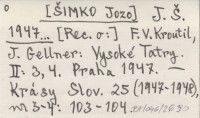 [ŠIMKO Jozo] J. Š.
1947... [Rec. o:] F. V. Kroutil,
J. Gellner: Vysoké Tatry.
II: 3, 4. Praha 1947. —
Krásy Slov. 25 (1947-1948),
nr 3-4: 103-104